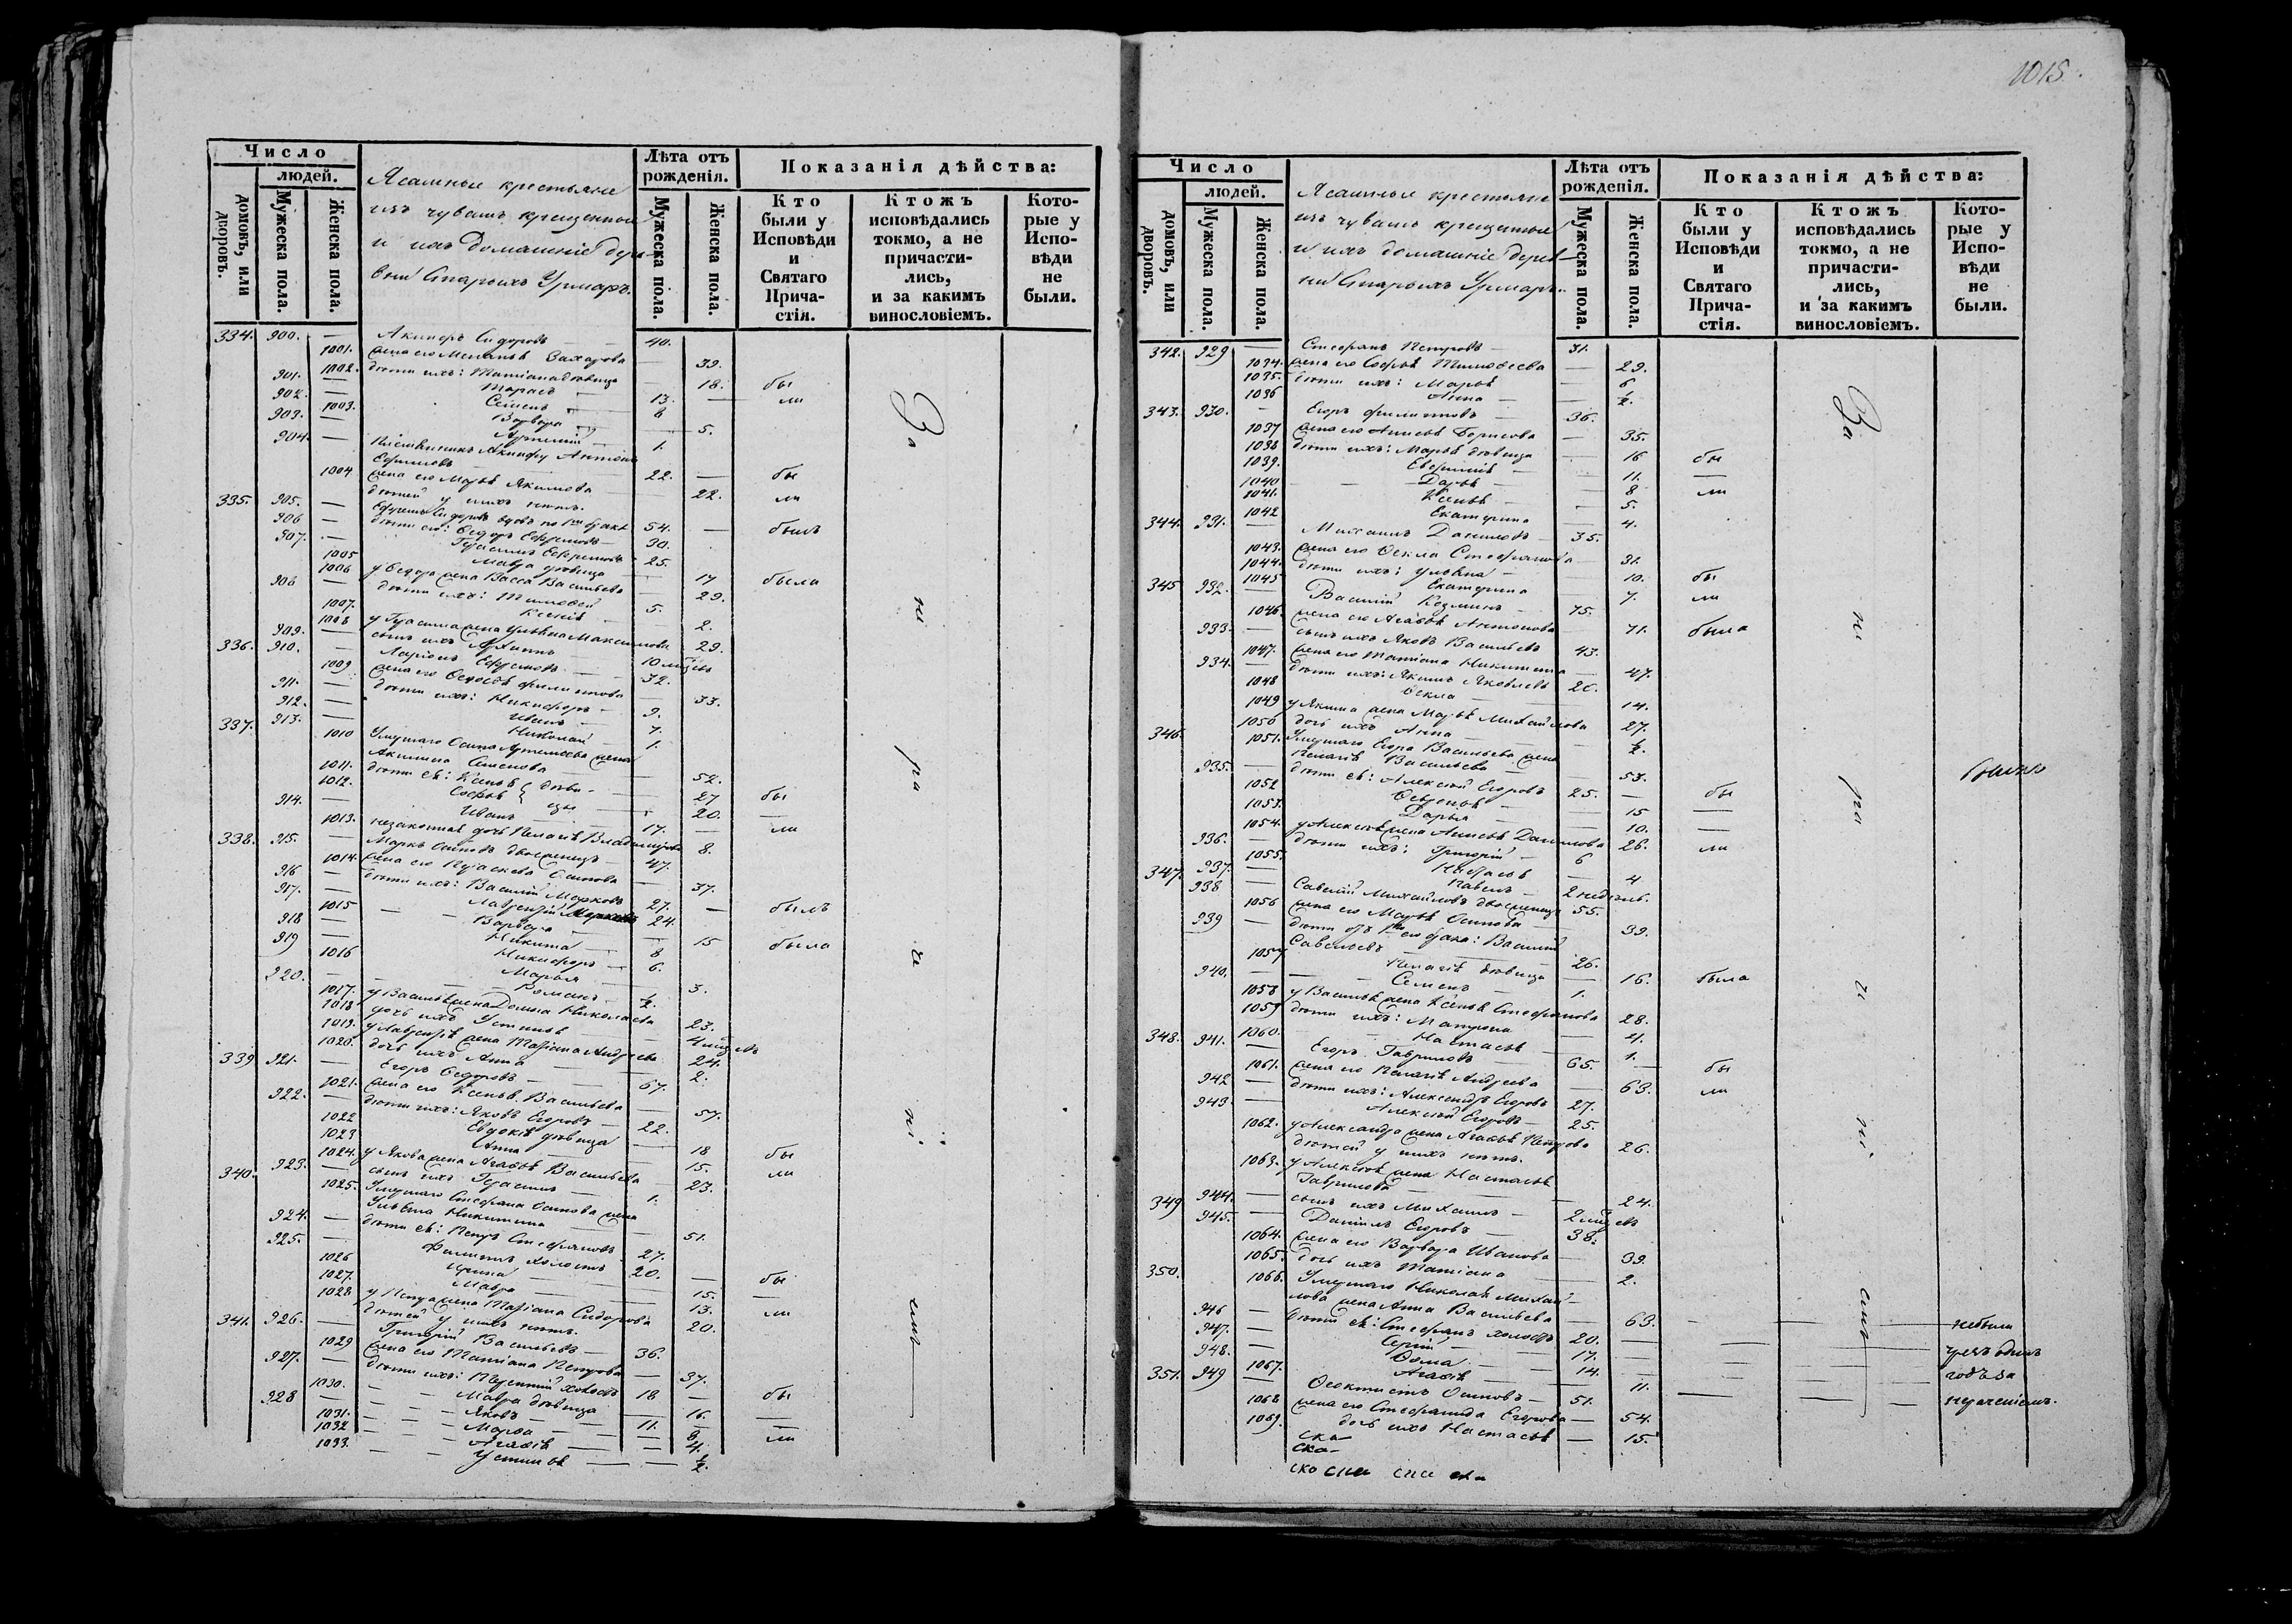 1015.
Число
людей.
домовъ, или дворовъ.
Мужеска пола.
Женска пола.
Ясашные крестьяне
изъ чувашъ крещенные
и ихъ домашніе дере-
вни Старыхъ Урмаръ.
Лѣта отъ рожденія.
Мужеска пола.
Женска пола.
Показанія дѣйства:
Кто были у Исповѣди и Святаго Прича-стія.
Ктожъ исповѣдались токмо, а не причасти-лись, и за какимъ винословіемъ.
Кото-рые у Испо-вѣди не были.
334. 900. — Акинѳъ Сидоровъ — 40.
1001. жена его Меланья Захарова — 39.
1002. дѣти ихъ: Татіана дѣвица — 18. бы
901. — Тарасъ — 13. — ли
902. — Семенъ — 8
903. 1003. Варвара — 5.
904. — Артемій — 1.
племянникъ Акинфу Антонъ
Ефимовъ — 22. — бы
1004 жена его Марья Якимова — 22. ли
дѣтей у нихъ нѣтъ.
335. 905. — Ефремъ Сидоровъ вдовъ по 1мъ бракѣ 54. — былъ
906 — дѣти его: Ѳедоръ Ефремовъ — 30.
907. — Герасимъ Ефремовъ 25.
1005 Мавра дѣвица — 17 была
1006 у Ѳедора жена Васса Васильева — 29.
908 — дѣти ихъ: Тимоѳей 5.
1007. Ксенія — 2.
1008 у Герасима жена Ульяна Максимова 29.
909. — сынъ ихъ Архипъ 10 мѣсяц
336. 910. — Ларіонъ Ефремовъ — 32.
1009 жена его Ѳедосья Филиппова 33.
911. — дѣти ихъ: Никифоръ — 9.
912. — Иванъ — 7.
913. — Николай — 1.
337. 1010 Умершаго Осипа Артемьева жена
Акилина Семенова — 52.
1011. дѣти ея: Ксенья дѣви- 27 бы
1012. Софья цы — 20. —
914. — Иванъ — 17. — ли
1013. незаконная дочь Пелагія Владимирова 8.
338. 915. — Маркъ Осиповъ двоеженецъ — 47.
1014. жена его Прасковья Осипова — 37.
916 — дѣти ихъ: Василій Марковъ 27. — былъ
917. — Лаврентій Марковъ 24.
1015 — Варвара — 15 была
918 — Никита — 8
919 — Никифоръ — 6.
1016 Марья — 3.
920. — Романъ — ½.
1017. у Василья жена Домна Николаева 23.
1018 дочь ихъ Устинья — 4 мѣсяц
1019. у Лаврентія жена Татіана Андреева 24.
1020. дочь ихъ Анна — 2.
339 921. — Егоръ Ѳедоровъ — 67.
1021. жена его Ксенья Васильева — 57.
922. — дѣти ихъ: Яковъ Егоровъ — 22.
1022 Евдокія дѣвица — 18 бы
1023 Анна — 15. ли
1024. у Якова жена Агаѳья Васильева — 23.
923. — сынъ ихъ Герасимъ — 1.
340. 1025. Умершаго Стефана Осипова жена
Ульяна Никитина — 51.
924. — дѣти ея: Петръ Стефановъ 27.
925. — Филиппъ холостъ 20. — бы
1026 Ирина — 15. —
1027. Мавра — 13. ли
1028 у Петра жена Татіана Сидорова 20.
дѣтей у нихъ нѣтъ.
341. 926. — Григорій Васильевъ — 36.
1029 жена его Татіана Петрова — 37.
927. — дѣти ихъ: холостъ 18 — бы
1030. — Мавра дѣвица — 16. —
928 — Яковъ — 11. ли
1031. — Марѳа — 8
1032 — Агаѳія — 4.
1033. — Устинья — ½.
За не ра че ні емъ
Число
людей.
домовъ, или дворовъ.
Мужеска пола.
Женска пола.
Ясашные крестьяне
изъ чувашъ крещенные
и ихъ домашніе дерев-
ни Старыхъ Урмаръ.
Лѣта отъ рожденія.
Мужеска пола.
Женска пола.
Показанія дѣйства:
Кто были у Исповѣди и Святаго Прича-стія.
Ктожъ исповѣдались токмо, а не причасти-лись, и за какимъ винословіемъ.
Кото-рые у Испо-вѣди не были.
342. 929 — Стефанъ Петровъ — 31.
1034. жена его Софья Тимоѳеева — 29.
1035. дѣти ихъ: Марья — 6
1036 Анна — ½.
343. 930. — Егоръ Филипповъ — 36.
1037 жена его Анисья Борисова — 35.
1038 дѣти ихъ: Марья дѣвица — 16 бы
1039. Евфимія — 11. —
1040 — Дарья — 8 ли
1041. Ксенья — 5.
1042 Екатерина — 4.
344. 931. — Михаилъ Даниловъ — 35.
1043. жена его Ѳекла Стефанова — 31.
1044. дѣти ихъ: Ульяна — 10. бы
1045 Екатерина — 7. ли
345 932. — Василій Козминъ — 75.
1046. жена его Агаѳья Антонова — 71. была
933. — сынъ ихъ Яковъ Васильевъ 43.
1047. жена его Татіана Никитина — 47.
934. — дѣти ихъ: Якимъ Яковлевъ 20.
1048 Ѳекла — 14.
1049 у Якима жена Марья Михайлова 27.
1050 дочь ихъ Анна — ½.
346. 1051. Умершаго Егора Васильева жена
Пелагія Васильева — 53.
935. — дѣти ея: Алексѣй Егоровъ 25. — бы
1052 Ѳевронья — 15 —
1053. Дарья — 10. —
1054. у Алексѣя жена Анисья Данилова 26. ли
936. — дѣти ихъ: Григорій — 6
1055. Настасья — 4
937. — Павелъ — 2 недѣль.
347. 938 — Савелій Михайловъ двоеженецъ 55.
1056 жена его Марья Осипова — 39.
939 — дѣти отъ 1го его брака: Василій
Савельевъ — 26.
1057 Пелагія дѣвица — 16. была
940. — Семенъ — 1.
1058 у Василья жена Ксенья Стефанова 28.
1059 дѣти ихъ: Матрона 4.
1060. — Настасья — 1.
348. 941. — Егоръ Гавриловъ — 65. — бы
1061. жена его Пелагія Андреева — 63. ли
942 — дѣти ихъ: Александръ Егоровъ 27.
943. — Алексѣй Егоровъ — 25.
1062. у Александра жена Агаѳья Петрова 26.
дѣтей у нихъ нѣтъ.
1063. у Алексѣя жена Настасья
Гаврилова — 24.
944. — сынъ ихъ Михаилъ — 2 мѣсяц
349 945. — Даніилъ Егоровъ — 38.
1064. жена его Варвара Иванова — 39.
1065. дочь ихъ Татіана — 2.
350. 1066. Умершаго Николая Михай-
лова жена Анна Васильева — 63. — небыли
946 — дѣти ея: Стефанъ холостъ 20. — чрезъ одинъ
947. — Сергій — 17. — годъ за
948. — Ѳома — 14. — нераченіемъ.
1067. Агаѳія — 11.
351. 949 — Ѳеоктистъ Осиповъ — 51.
1068 жена его Стефанида Егорова — 54.
1069. дочь ихъ Настасья — 15.
За не ра че ні емъ